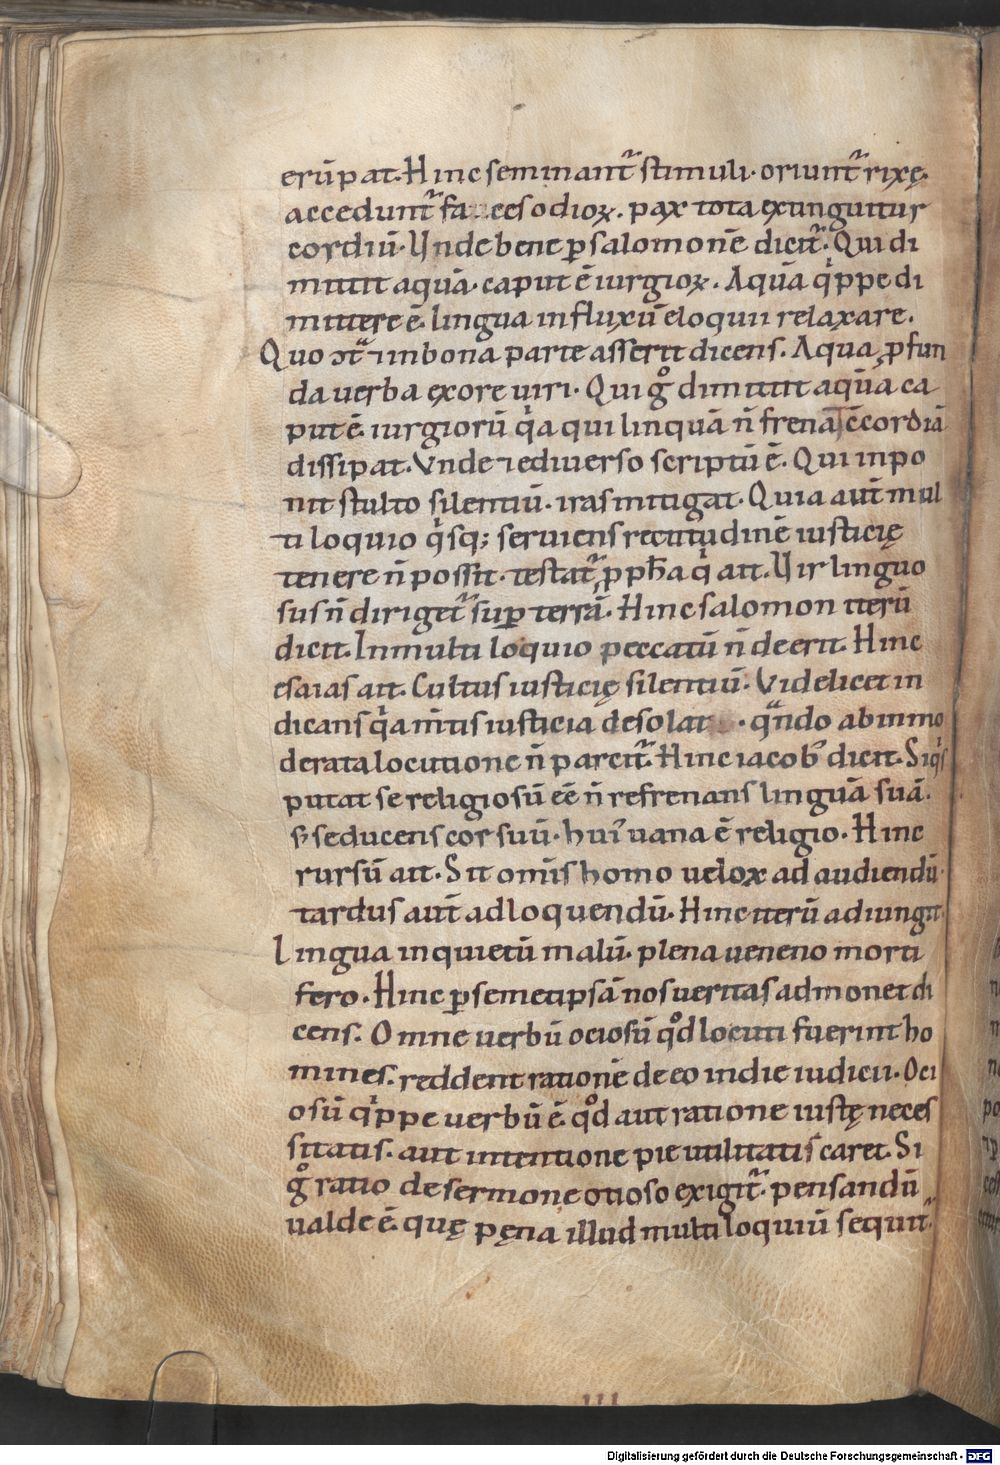 erū pat. Hinc seminant᷑ stimuli. oriunt᷑ rixę.
accedunt᷑ fa ces odioꝝ. pax tota extinguitur
cordiū. Unde bene ꝑ salomonē dicit᷑. Qui di
mittit aquā. caput ē iurgioꝝ. Aquā qͥppe di
mittere ē. lingua in fluxū eloquii relaxare.
Quo ↄtᷓ ⁊ in bona parte asserit dicens. Aqua ꝓfun
da uerba ex ore uiri. Qui gͦ dimittit aquā ca
put ē. iurgiorū qͥa qui linquā n̄ frenat ↄcordiā
dissipat. Vnde ⁊ ediuerso scriptū ē. Qui inpo
nit stulto silentiū. iras mitigat. Quia aut̄ mul
ti loquio qͥsq; seruiens rectitudinē iusticię
tenere n̄ possit. testat᷑ ꝓph̄a qͥ ait. Vir linguo
sus n̄ diriget᷑ suꝑ terrā. Hinc salomon iterū
dicit. In multi loquio peccatū n̄ deerit. Hinc
esaias ait. Cultus iusticię silentiū. Videlicet in
dicans qͥa m̄tis iusticia desolat . qᷓndo ab inmo
derata locutione n̄ parcit᷑. Hinc iacob᷒ dicit. Si qͥs
putat se religiosū eē n̄ refrenans linguā suā.
ſꝫ seducens cor suū. hui᷒ uana ē religio. Hinc
rursū ait. Sit om̄is homo uelox ad audiendū.
tardus aut̄ ad loquendū. Hinc iterū adiungit.
Lingua inquietū malū. plena ueneno morti
fero. Hinc ꝑ semetipsā nos ueritas admonet di
cens. Omne uerbū ociosū qͦd locuti fuerint ho
mines. reddent rationē de eo in die iudicii. Oci
osū qͥppe uerbū ē. qͦd aut ratione iustę neces
sitatis. aut intentione pie utilitatis caret. Si
gͦ ratio de sermone otioso exigit᷑. pensandū
ualde ē. quę pęna illud multiloquiū sequit᷑.
III
Digitalisierung gefördert durch die Deutsche Forschungsgemeinschaft - DFG